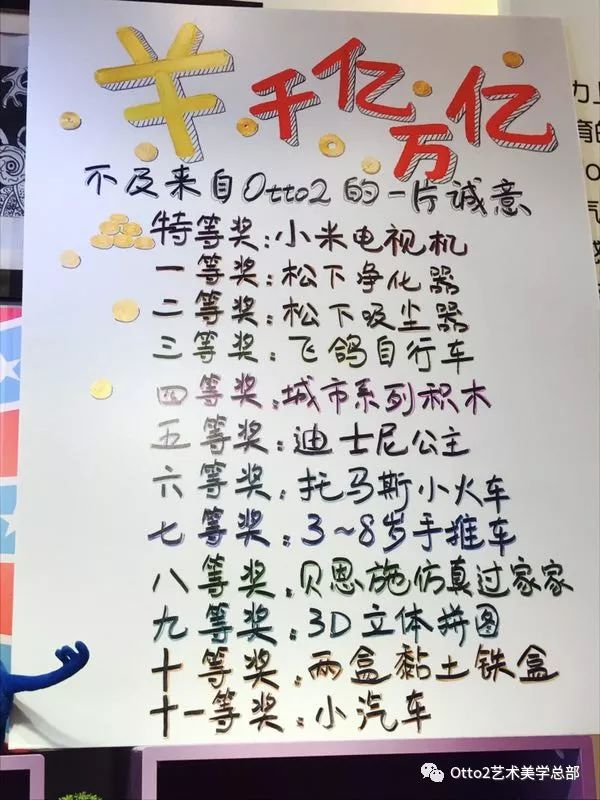 ¥千亿万亿
不及来自Otto2的一片诚意
特等奖:小米电视机
一等奖:松下净化器
二等奖:松下吸尘器
三等奖:飞鸽自行车
四等奖:城市系列积木
五等奖:迪士尼公主
六等奖:托马斯小火车
七等奖:3~8岁手推车
八等奖:贝恩施仿真过家家
九等奖:3D立体拼图
十等奖:两盒黏土铁盒
十一等奖:小汽车
Otto2艺术美学总部